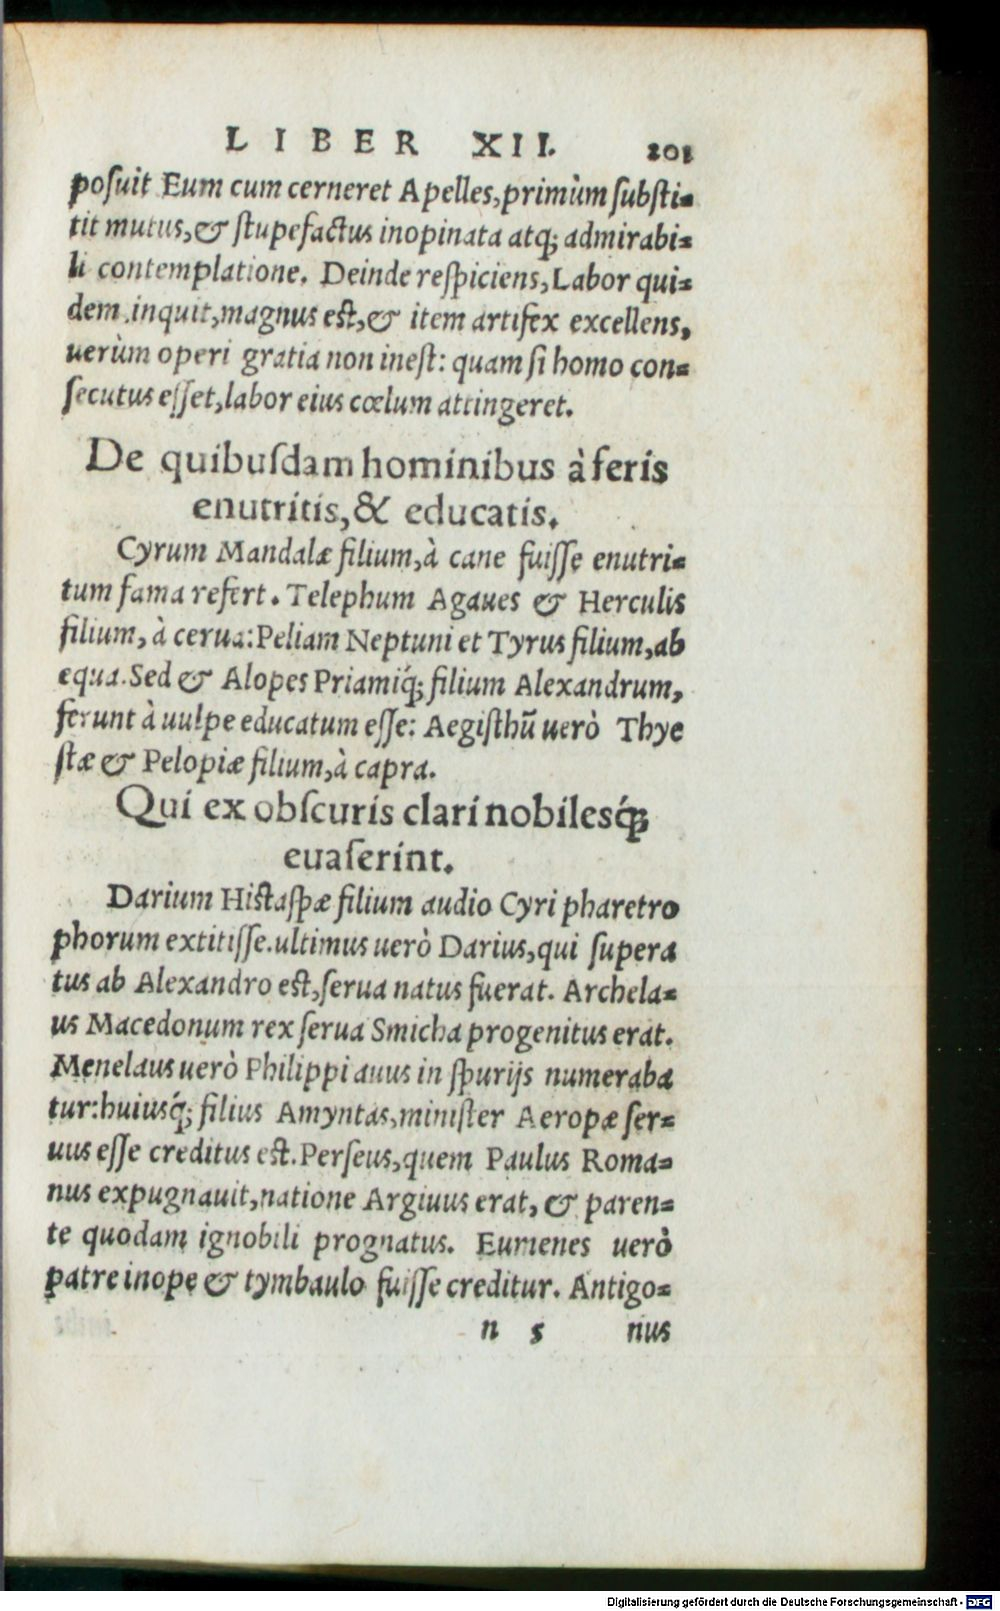 LIBER XII. 201
posuit Eum cum cerneret Apelles, primùm substi-
tit mutus, & stupefactus inopinata atq; admirabi-
li contemplatione. Deinde respiciens, Labor qui-
dem, inquit, magnus est, & item artifex excellens,
uerùm operi gratia non inest: quam si homo con-
secutus esset, labor eius cœlum attingeret.
De quibusdam hominibus à feris
enutritis, & educatis.
Cyrum Mandalæ filium, à cane fuisse enutri-
tum fama refert. Telephum Agaues & Herculis
filium, à cerua: Peliam Neptuni et Tyrus filium, ab
equa. Sed & Alopes Priamiq́; filium Alexandrum,
ferunt à uulpe educatum esse: Aegisthū uerò Thye
stæ & Pelopiæ filium, à capra.
Qui ex obscuris clari nobilesq́;
euaserint.
Darium Histaspæ filium audio Cyri pharetro
phorum extitisse. ultimus uerò Darius, qui supera
tus ab Alexandro est, serua natus fuerat. Archela-
us Macedonum rex serua Smicha progenitus erat.
Menelaus uerò Philippi auus in spurijs numeraba
tur: huiusq́; filius Amyntas, minister Aeropæ ser-
uus esse creditus est. Perseus, quem Paulus Roma-
nus expugnauit, natione Argiuus erat, & paren-
te quodam ignobili prognatus. Eumenes uerò
patre inope & tymbaulo fuisse creditur. Antigo-
n 5 nus
Digitalisierung gefördert durch die Deutsche Forschungsgemeinschaft - DFG